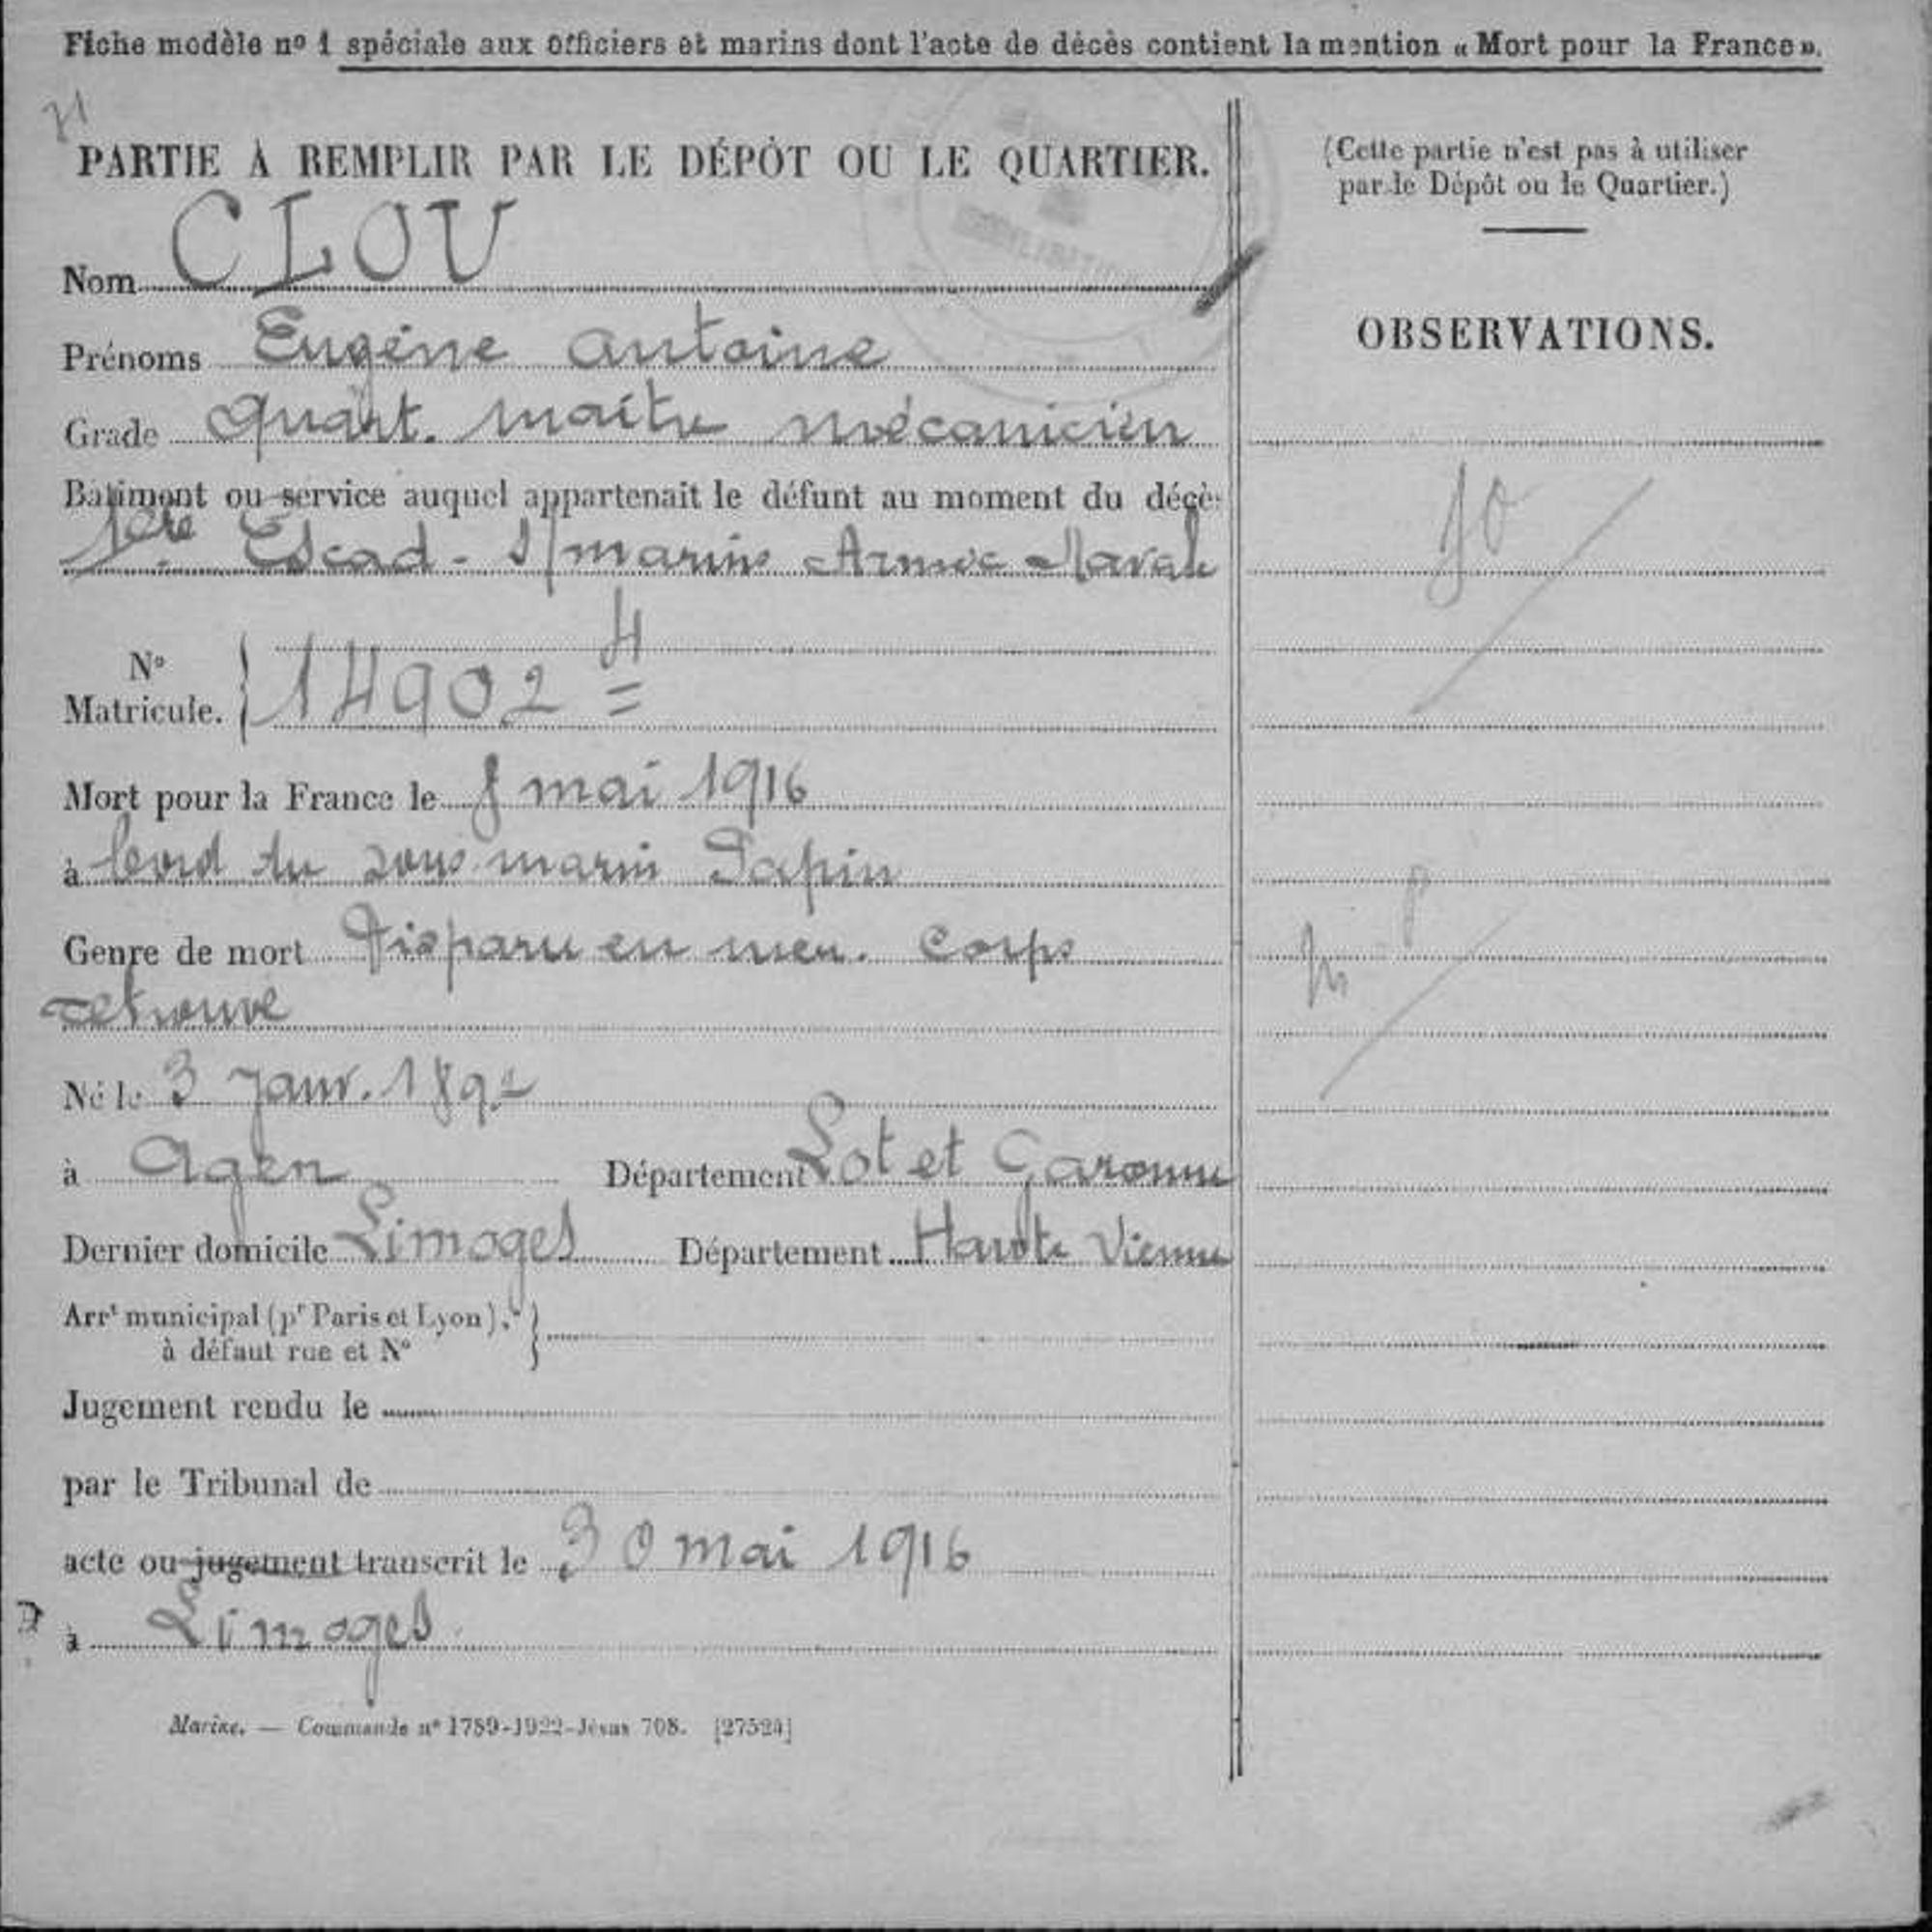 Fiche modèle nº 1 spéciale aux officiers et marins dont l'acte de décès contient la mention « Mort pour la France ».
PARTIE À REMPLIR PAR LE DÉPÔT OU LE QUARTIER.
Nom CLOU
Prénoms Eugéne Antoine
Grade Quart. maitre mécanicien
Bâtiment ou service auquel appartenait le défunt au moment du décès
1ère Escad. S/marins Armée Navale
Nº Matricule. 14902 4
Mort pour la France le 8 mai 1916
à bord du sous marin Papin
Genre de mort Disparu en mer. Corps
retrouvé
Né le 3 Janv. 189
à Agen Département Lot et Garonne
Dernier domicile Limoges Département Haute Vienne
Arrt municipal (pr Paris et Lyon),
à défaut rue et Nº
Jugement rendu le
par le Tribunal de
acte ou jugement transcrit le 30 mai 1916
à Limoges
Marine. — Commande nº 1789-1922-Jésus 708. [27524]
(Cette partie n'est pas à utiliser
par le Dépôt ou le Quartier.)
OBSERVATIONS.